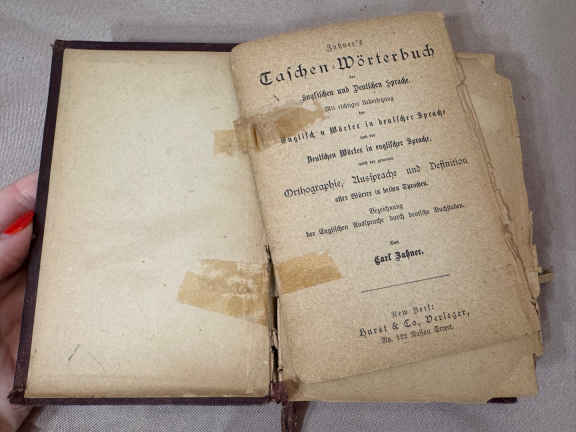 Zahner's
Taschen-Wörterbuch
der
Englischen und Deutschen Sprache.
Mit richtiger Uebersetzung
der
Englischen Wörter in deutscher Sprache
und der
Deutschen Wörter in englischer Sprache,
nebst der genauen
Orthographie, Aussprache und Definition
aller Wörter in beiden Sprachen.
Bezeichnung
der Englischen Aussprache durch deutsche Buchstaben.
Von
Carl Zahner.
New York:
Hurst & Co., Verleger,
No. 122 Nassau Street.